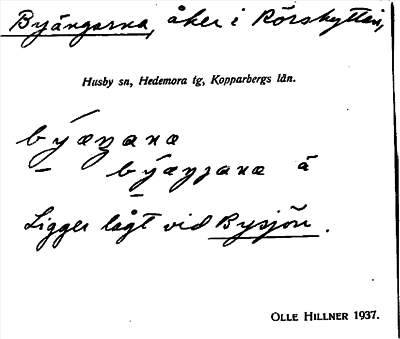 Byängarna, åker i Rörshyttan,
Husby sn, Hedemora tg, Kopparbergs län.
Ligger lågt vid Bysjön.
OLLE HILLNER 1937.